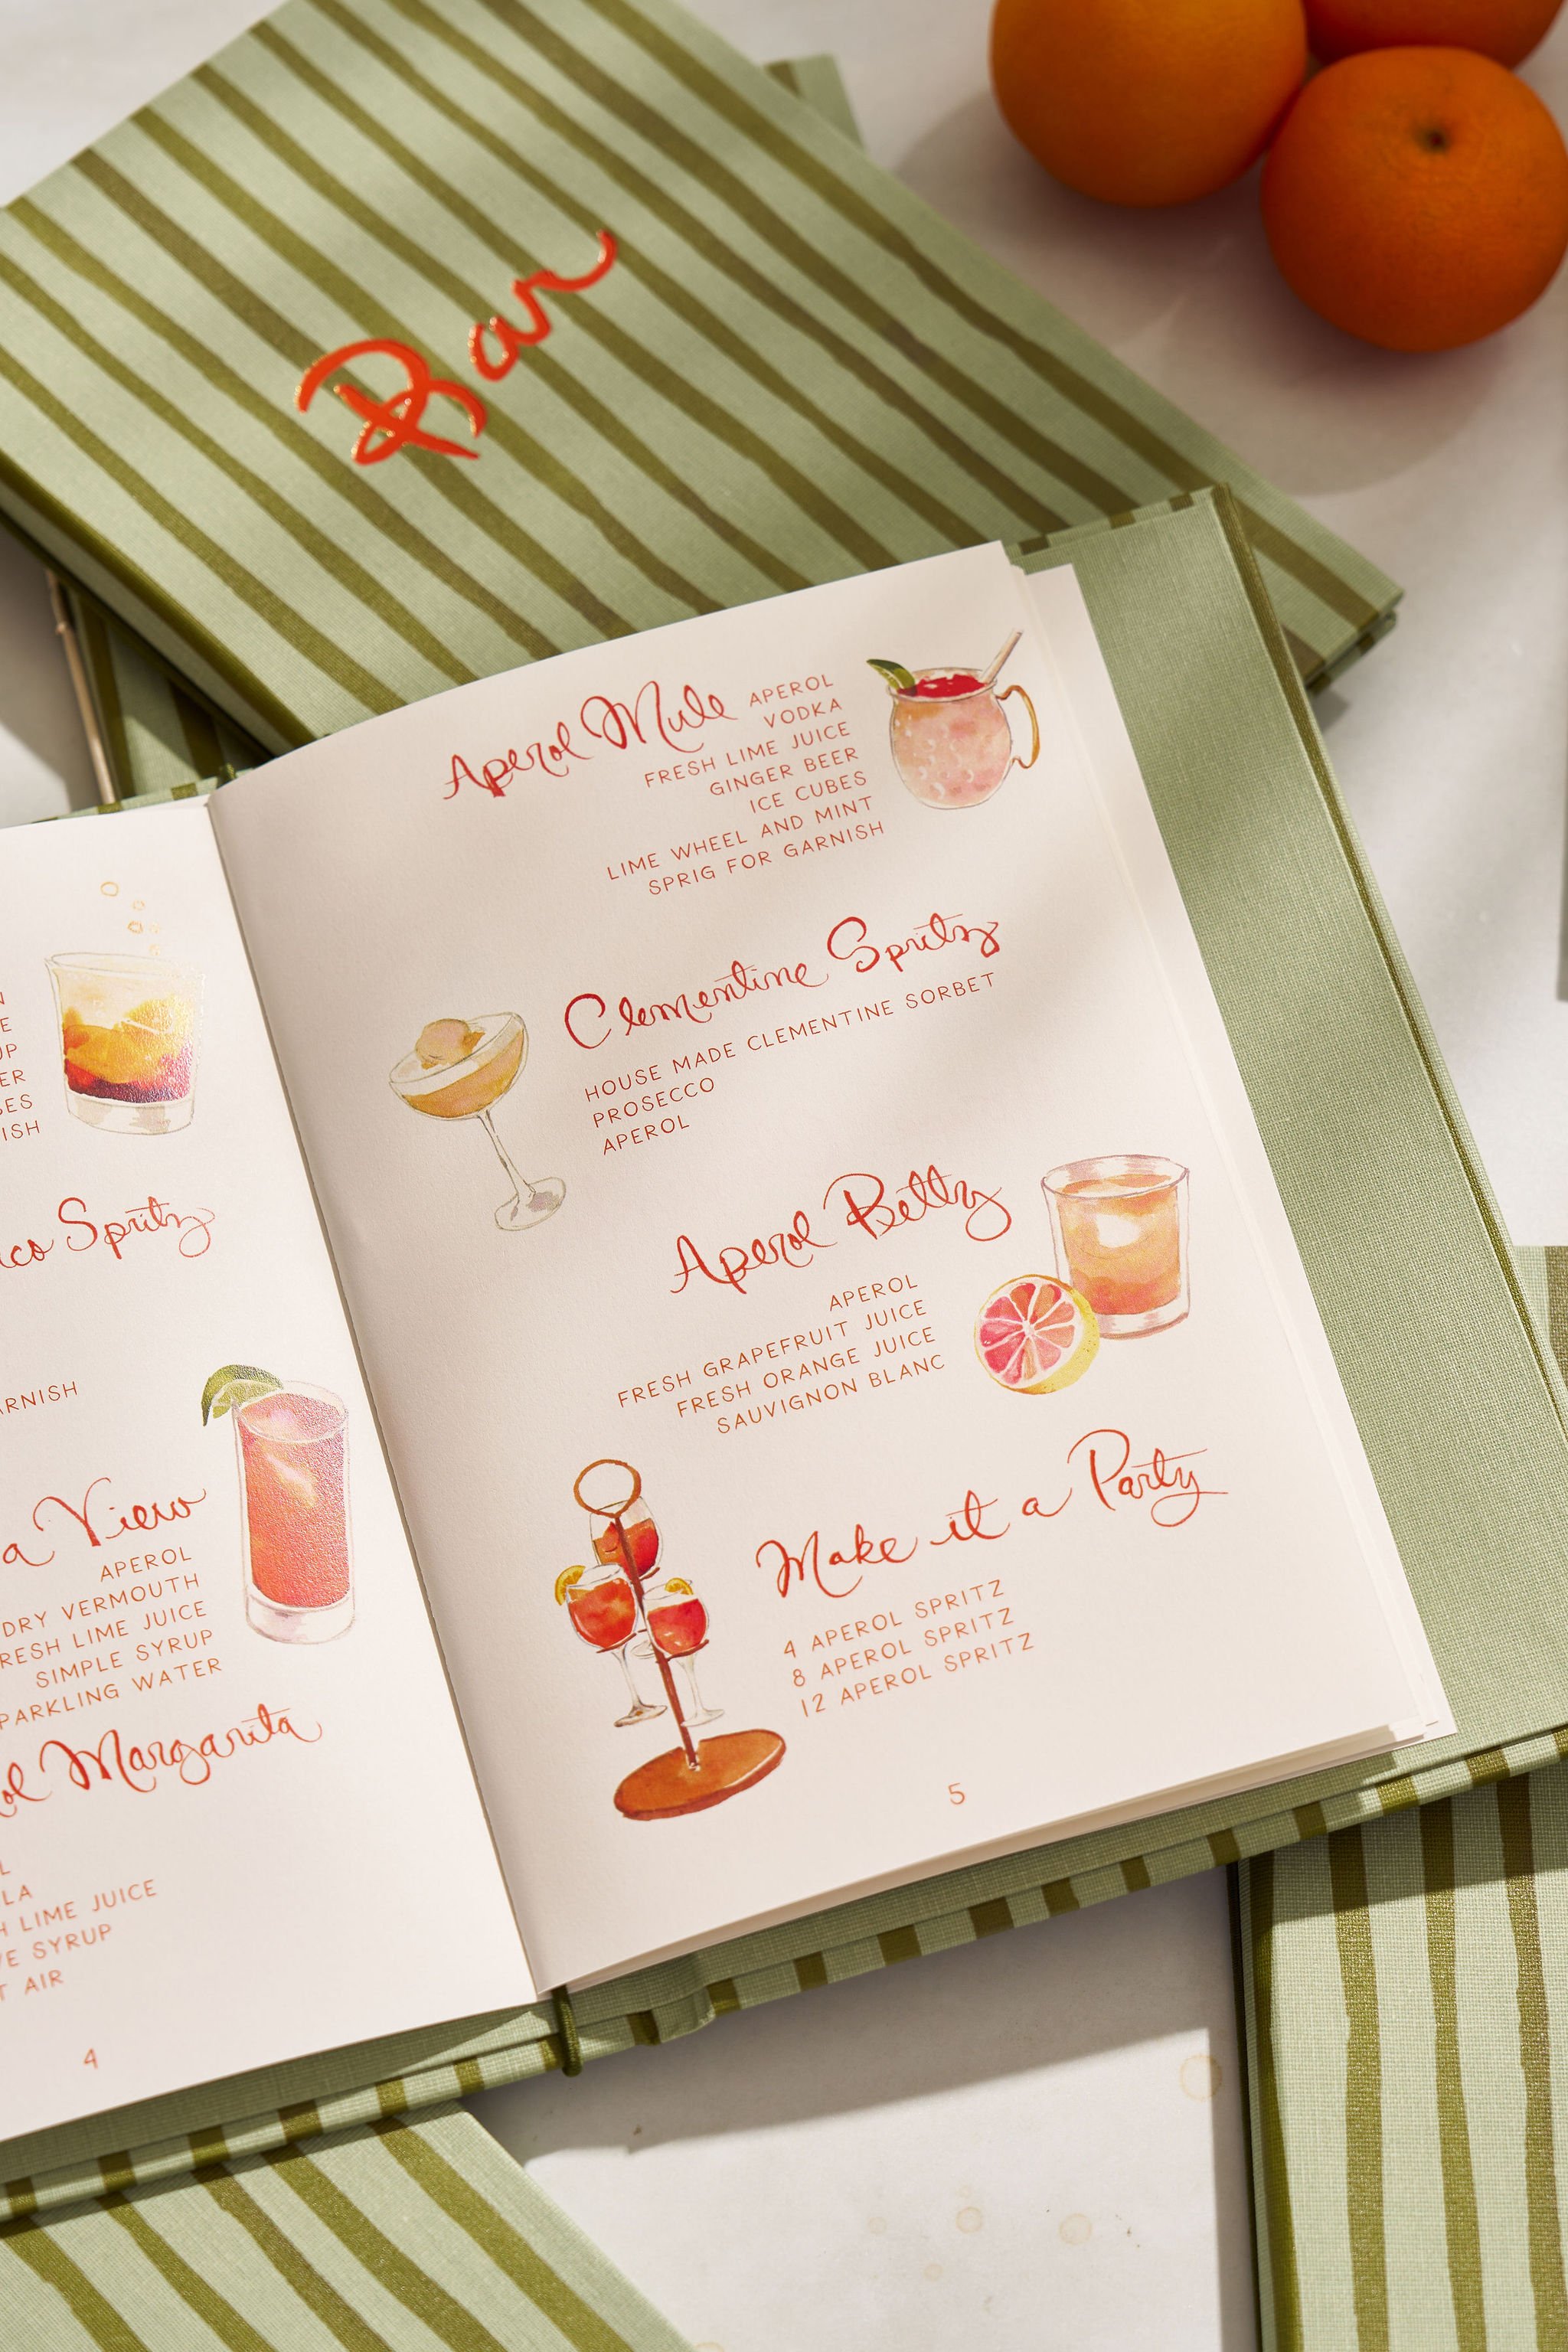 Bar
Spritz
a View
APEROL
DRY VERMOUTH
LIME JUICE
SIMPLE SYRUP
WATER
Margarita
LIME JUICE
SYRUP
AIR
4
Aperol Mule
APEROL
VODKA
FRESH LIME JUICE
GINGER BEER
ICE CUBES
LIME WHEEL AND MINT
SPRIG FOR GARNISH
Clementine Spritz
HOUSE MADE CLEMENTINE SORBET
PROSECCO
APEROL
Aperol Betty
APEROL
FRESH GRAPEFRUIT JUICE
FRESH ORANGE JUICE
SAUVIGNON BLANC
Make it a Party
4 APEROL SPRITZ
8 APEROL SPRITZ
12 APEROL SPRITZ
5